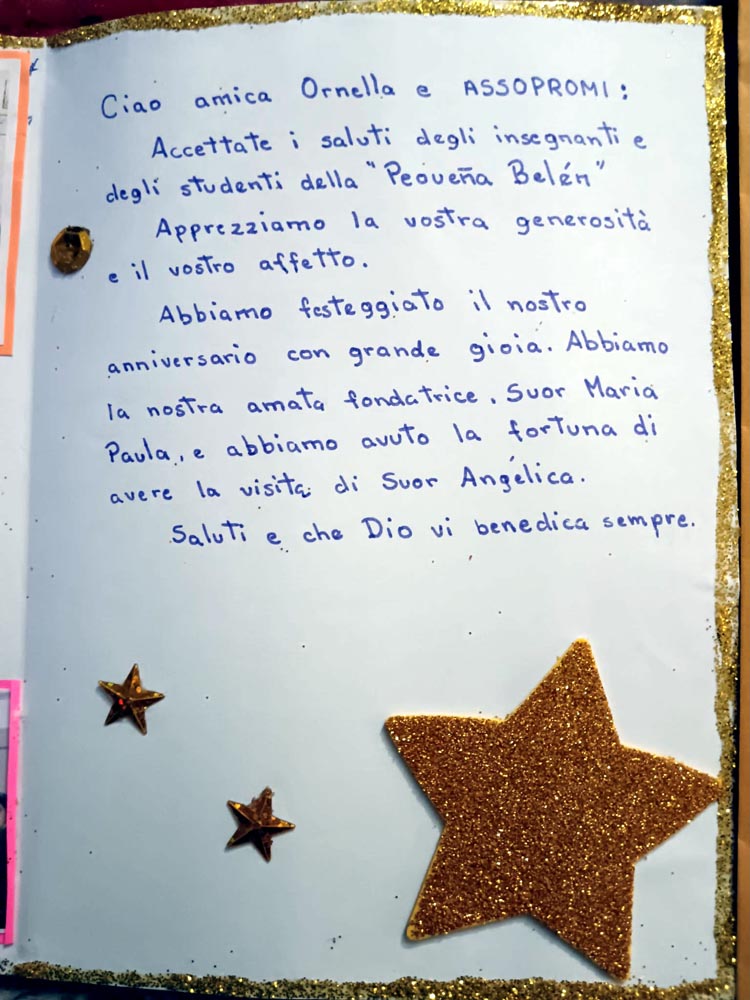 Ciao amica Ornella e ASSOPROMI:
Accettate i saluti degli insegnanti e
degli studenti della "Pequeña Belén"
Apprezziamo la vostra generosità
e il vostro affetto.
Abbiamo festeggiato il nostro
anniversario con grande gioia. Abbiamo
la nostra amata fondatrice, Suor Maria
Paula, e abbiamo avuto la fortuna di
avere la visita di Suor Angélica.
Saluti e che Dio vi benedica sempre.